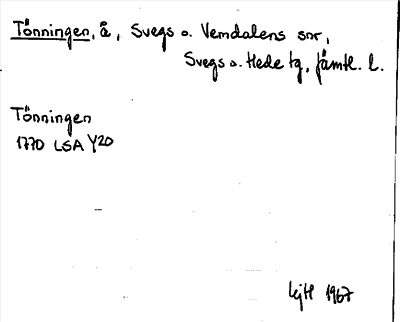 Tönningen, å, Svegs o. Vemdalens snr,
Svegs o. Hede tg, Jämtl. l.
Tönningen
1770 LSA Y20
LyH 1967